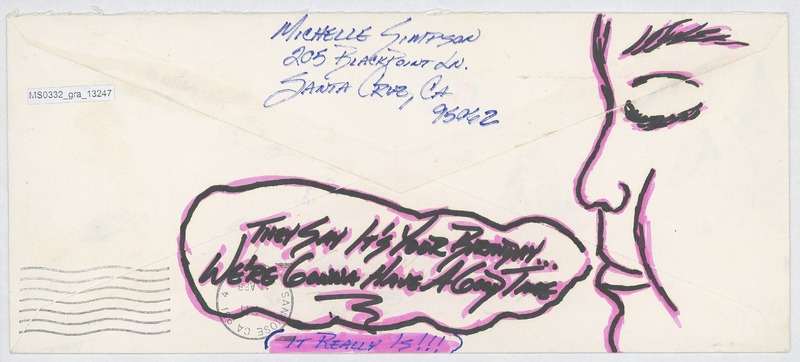 Michelle Simpson
205 Blackpoint Ln.
Santa Cruz, CA
95062
MS0332_gra_13247
They Say It's Your Birthday...
We're Gonna Have A Good Time
(It Really Is!!!)
SAN JOSE CA